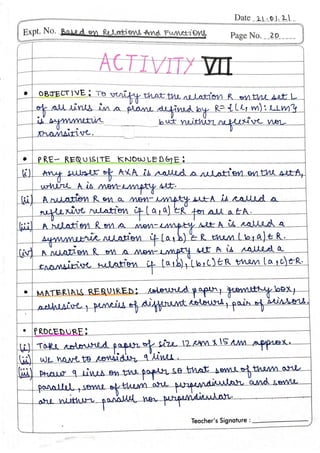 Date 21.01.21
Expt. No. Based on Relations And Functions
Page No. 20
ACTIVITY VII
• OBJECTIVE: To verify that the relation R on the set L
of all lines in a plane defined by R= {(l, m): l⊥m}
is symmetric but neither reflexive nor
transitive.
• PRE- REQUISITE KNOWLEDGE:
(i) Any subset of AXA is called a relation on the set A,
where A is non-empty set.
(ii) A relation R on a non-empty set A is called a
reflexive relation if (a,a) ∈R for all a ∈A.
(iii) A relation R on a non-empty set A is called a
symmetric relation if (a,b) ∈ R then (b,a) ∈ R.
(iv) A relation R on a non-empty set A is called a
transitive relation if (a,b), (b,c) ∈R then (a,c) ∈R.
• MATERIALS REQUIRED: coloured paper, geometry box,
adhesive, pencils of different colours, pair of scissors.
• PROCEDURE:
(i) Take coloured paper of size 12 cm X 15 cm approx.
(ii) We have to consider 9 lines.
(iii) Draw 9 lines on the paper so that some of them are
parallel, some of them are perpendicular and some
are neither parallel nor perpendicular.
Teacher's Signature :